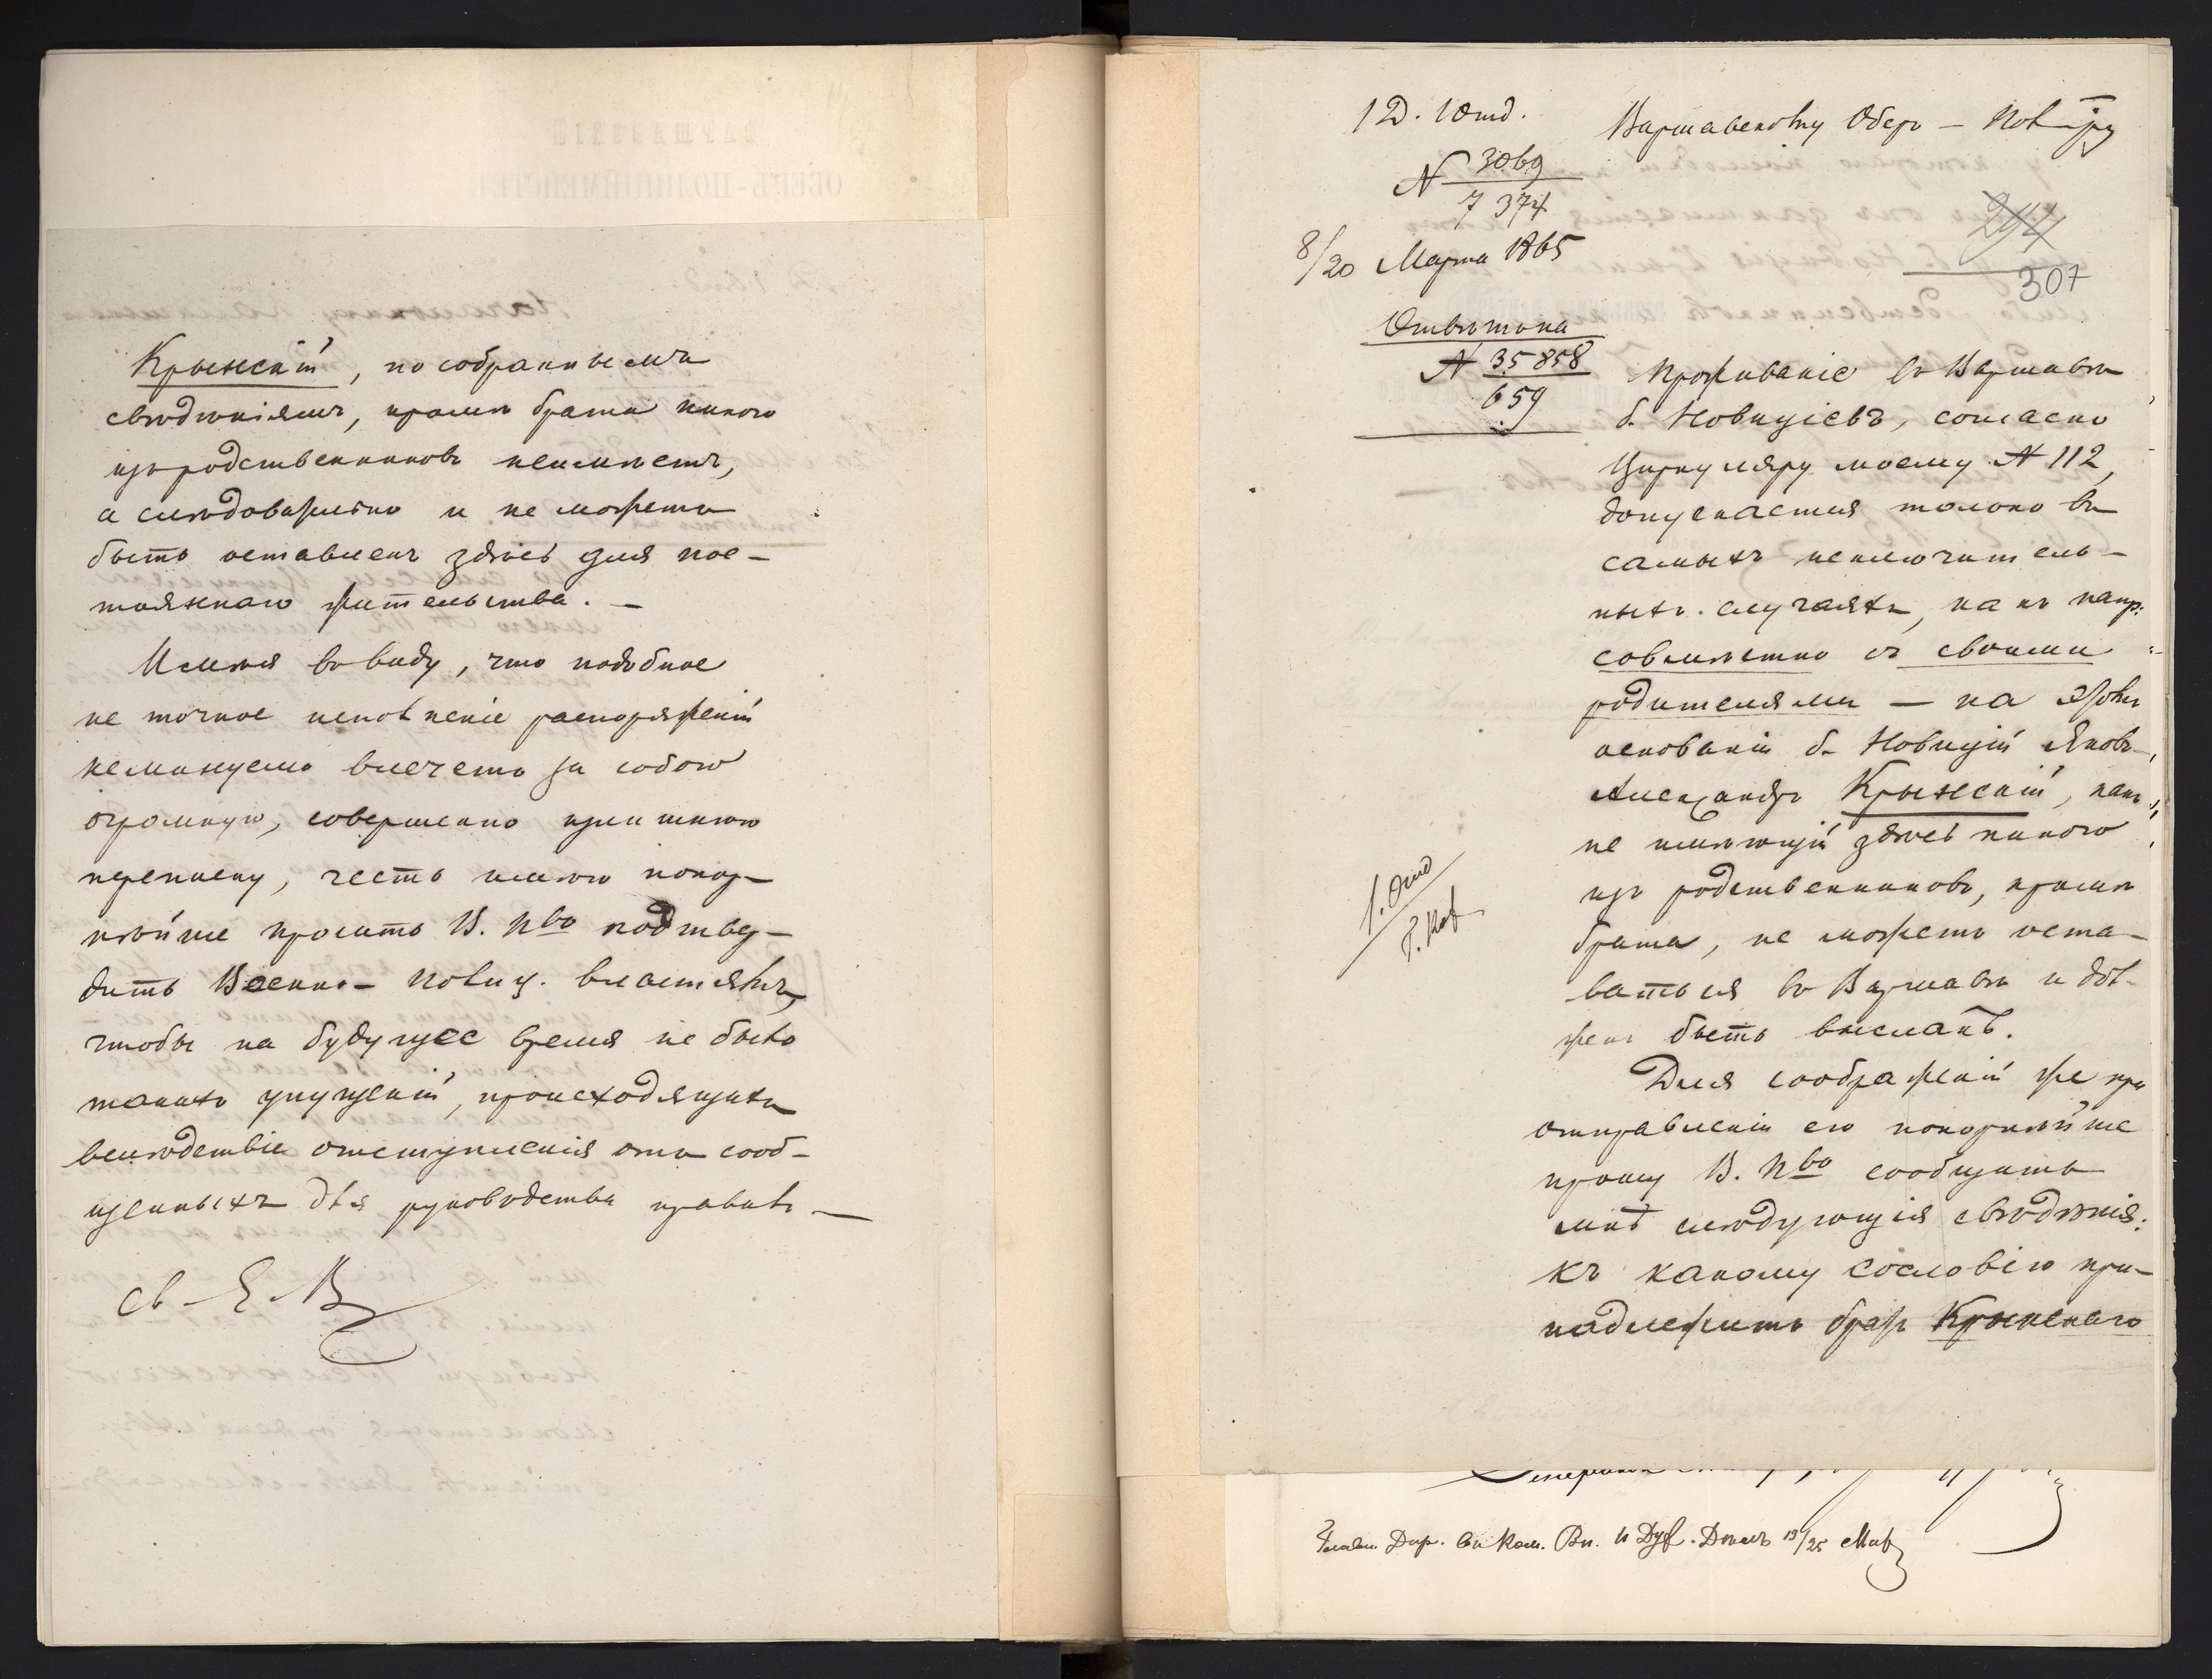 Крынскій, по собраннымъ
свѣдѣніямъ, кромѣ брата никого
изъ родственниковъ неимѣетъ,
а слѣдовательно и не можетъ
быть оставленъ здѣсь для пос-
тояннаго жительства. —
Имѣя въ виду, что подобное
не точное исполненіе распоряженій
неминуемо влечетъ за собою
огромную, совершенно излишнюю
переписку, честь имѣю покор-
нѣйше просить В. Пво подтвер-
дить Военно-Полиц. властямъ,
чтобы на будущее время не было
такихъ упущеній, происходящихъ
вслѣдствіе отступленія отъ сооб-
щенныхъ для руководства правилъ —
1 Д. 1 Отд.
N 3069
7 374
8/20 Марта 1865
Отвѣтъ на
N 35858
659
Варшавскому Оберъ-Пол-ру
294
307
Проживаніе въ Варшавѣ
б. Новиціевъ, согласно
Циркуляру моему N 112,
допускается только въ
самыхъ исключитель-
ныхъ случаяхъ, какъ напр:
совмѣстно съ своими
родителями — на этомъ
основаніи б. Новицій Яковъ-
Александръ Крынскій, какъ
не имѣющій здѣсь никого
изъ родственниковъ, кромѣ
брата, не можетъ оста-
ваться въ Варшавѣ и дол-
женъ быть высланъ.
Для соображеній же при
отправленіи его покорнѣйше
прошу В. Пво сообщить
мнѣ слѣдующія свѣдѣнія:
къ какому сословію при-
надлежитъ братъ Крынскаго
1. Отд
Главн. Дир. въ Ком. Вн. и Дух. Дѣлъ 13/25 Мар